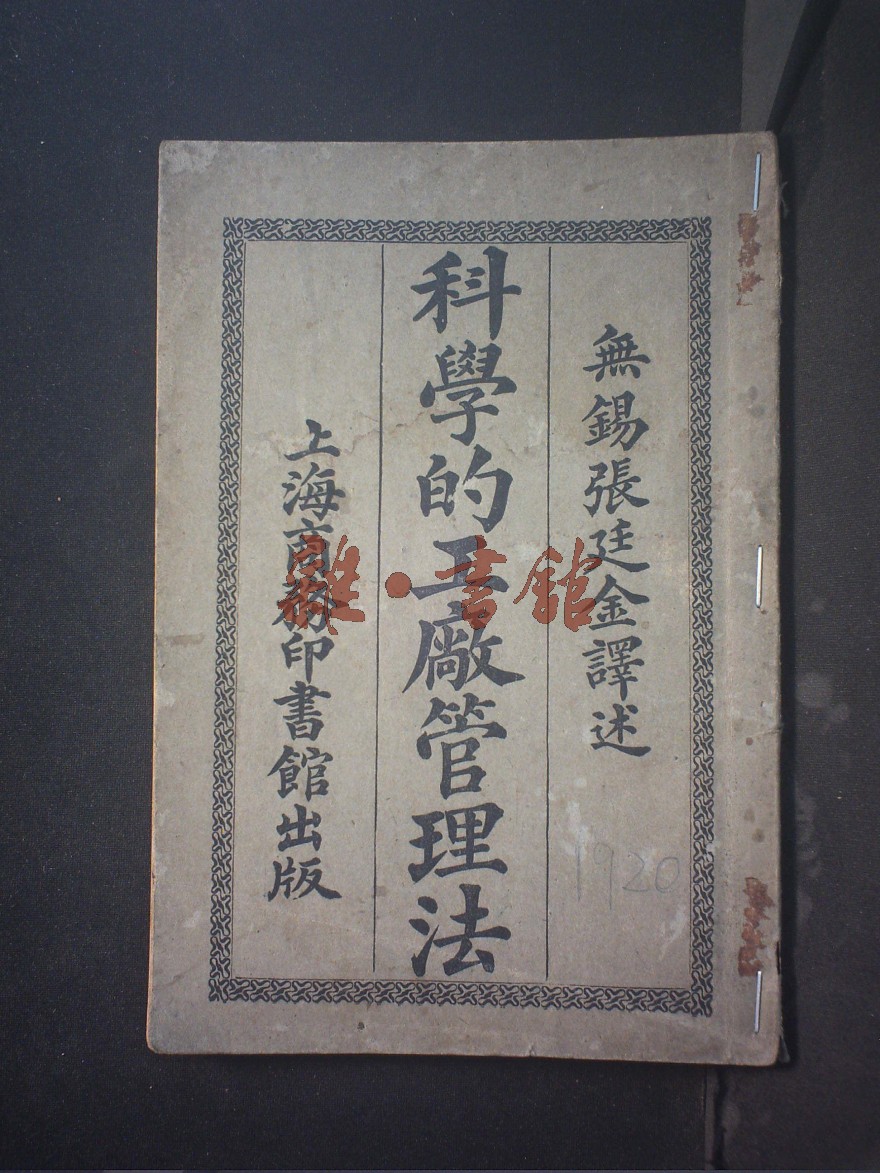 無錫張廷金譯述
科學的工廠管理法
上海商務印書館出版
1920
雜·書館